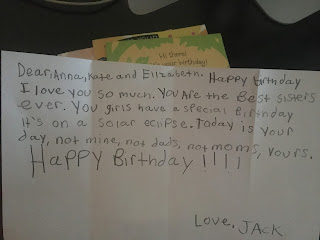 Hi there!
your birthday!
Dear Anna, Kate and Elizabeth. Happy birthday
I love you so much. You Are the Best sisters
ever. You girls have a special Birthday
It's on a solar eclipse. Today is your
day, not mine, not dads, not moms, yours.
HAPPY Birthday!!!!
Love, JACK